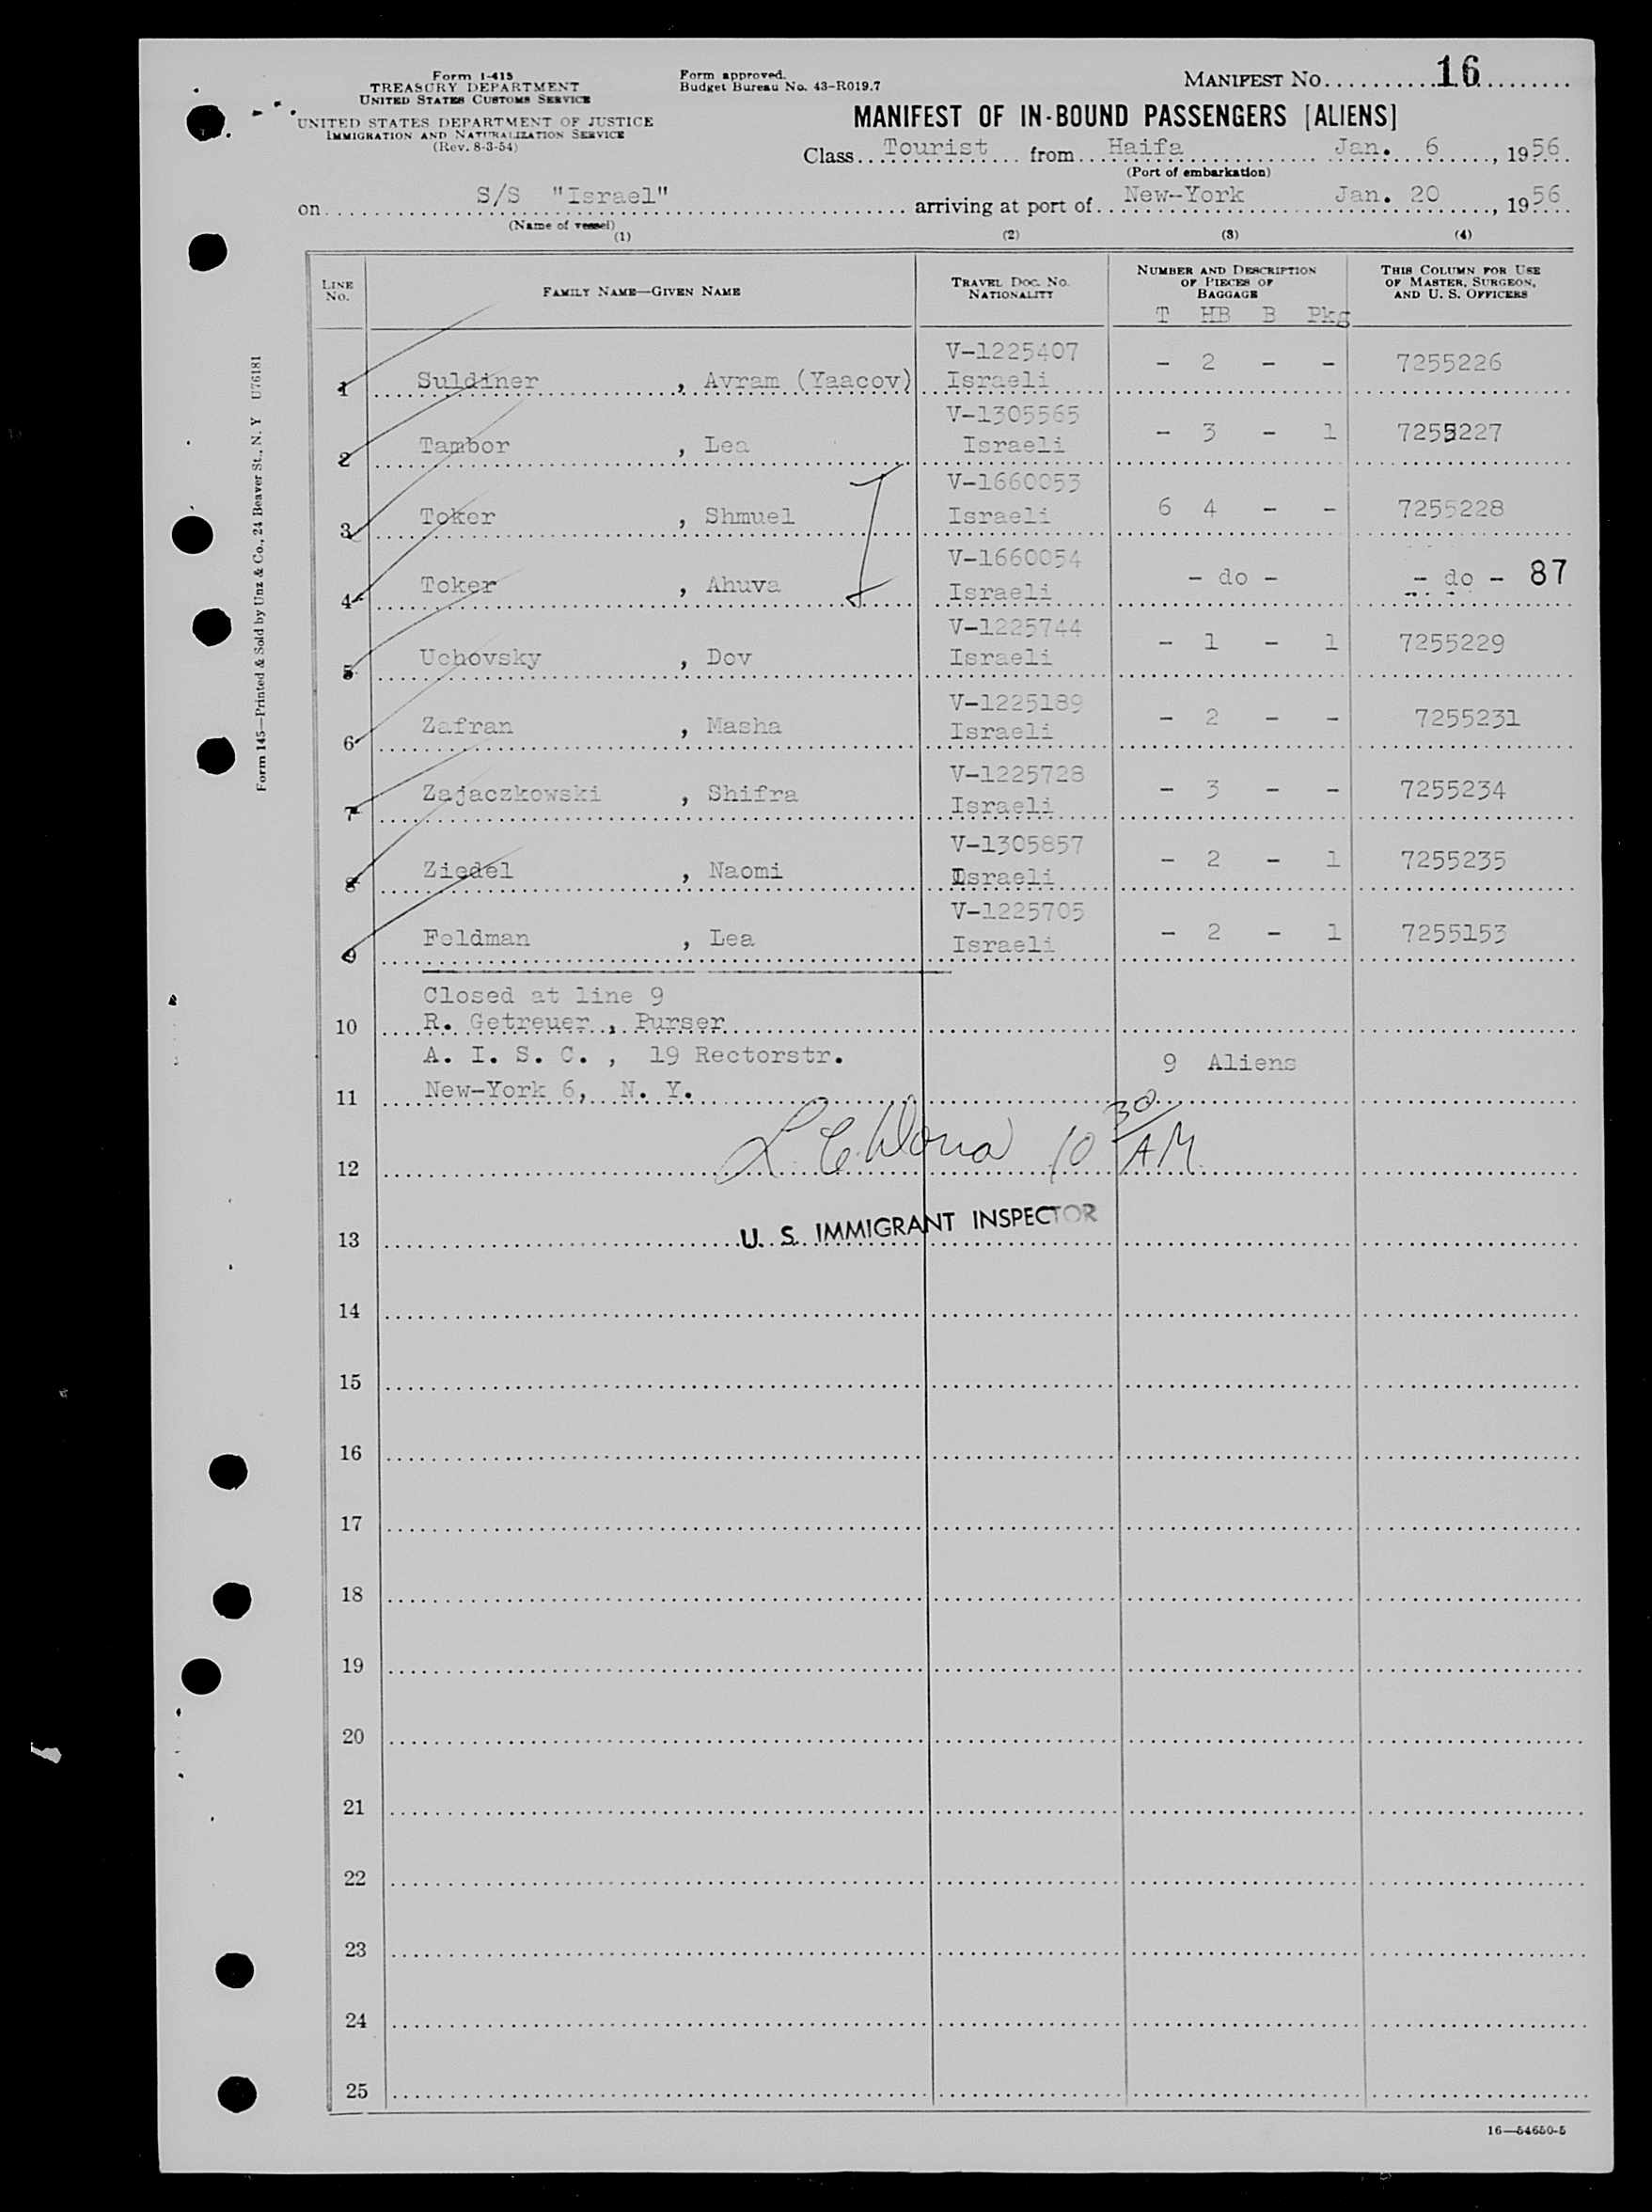 Form I-415
TREASURY DEPARTMENT
UNITED STATES CUSTOMS SERVICE
UNITED STATES DEPARTMENT OF JUSTICE
IMMIGRATION AND NATURALIZATION SERVICE
(Rev. 8-3-54)
Form approved.
Budget Bureau No. 43-R019.7
MANIFEST NO. 16
MANIFEST OF IN-BOUND PASSENGERS [ALIENS]
Class Tourist from Haifa Jan. 6, 1956
(Port of embarkation)
on S/S "Israel" arriving at port of New-York Jan. 20, 1956
(Name of vessel)
(1) (2) (3) (4)
LINE No. FAMILY NAME—GIVEN NAME TRAVEL DOC. No. NATIONALITY NUMBER AND DESCRIPTION OF PIECES OF BAGGAGE THIS COLUMN FOR USE OF MASTER, SURGEON, AND U. S. OFFICERS
T HB B Pkg
V-1225407
1 Suldiner , Avram (Yaacov) Israeli - 2 - - 7255226
V-1305565
2 Tambor , Lea Israeli - 3 - 1 7255227
V-1660053
3 Toker , Shmuel Israeli 6 4 - - 7255228
V-1660054
4 Toker , Ahuva Israeli - do - - do - 87
V-1225744
5 Uchovsky , Dov Israeli - 1 - 1 7255229
V-1225189
6 Zafran , Masha Israeli - 2 - - 7255231
V-1225728
7 Zajaczkowski , Shifra Israeli - 3 - - 7255234
V-1305857
8 Ziedel , Naomi Israeli - 2 - 1 7255235
V-1225705
9 Feldman , Lea Israeli - 2 - 1 7255153
Closed at line 9
10 R. Getreuer , Purser
A. I. S. C. , 19 Rectorstr. 9 Aliens
11 New-York 6, N. Y.
12 10 30 AM
13 U. S. IMMIGRANT INSPECTOR
14
15
16
17
18
19
20
21
22
23
24
25
16—54650-5
Form 145—Printed & Sold by Unz & Co., 24 Beaver St., N. Y U76181